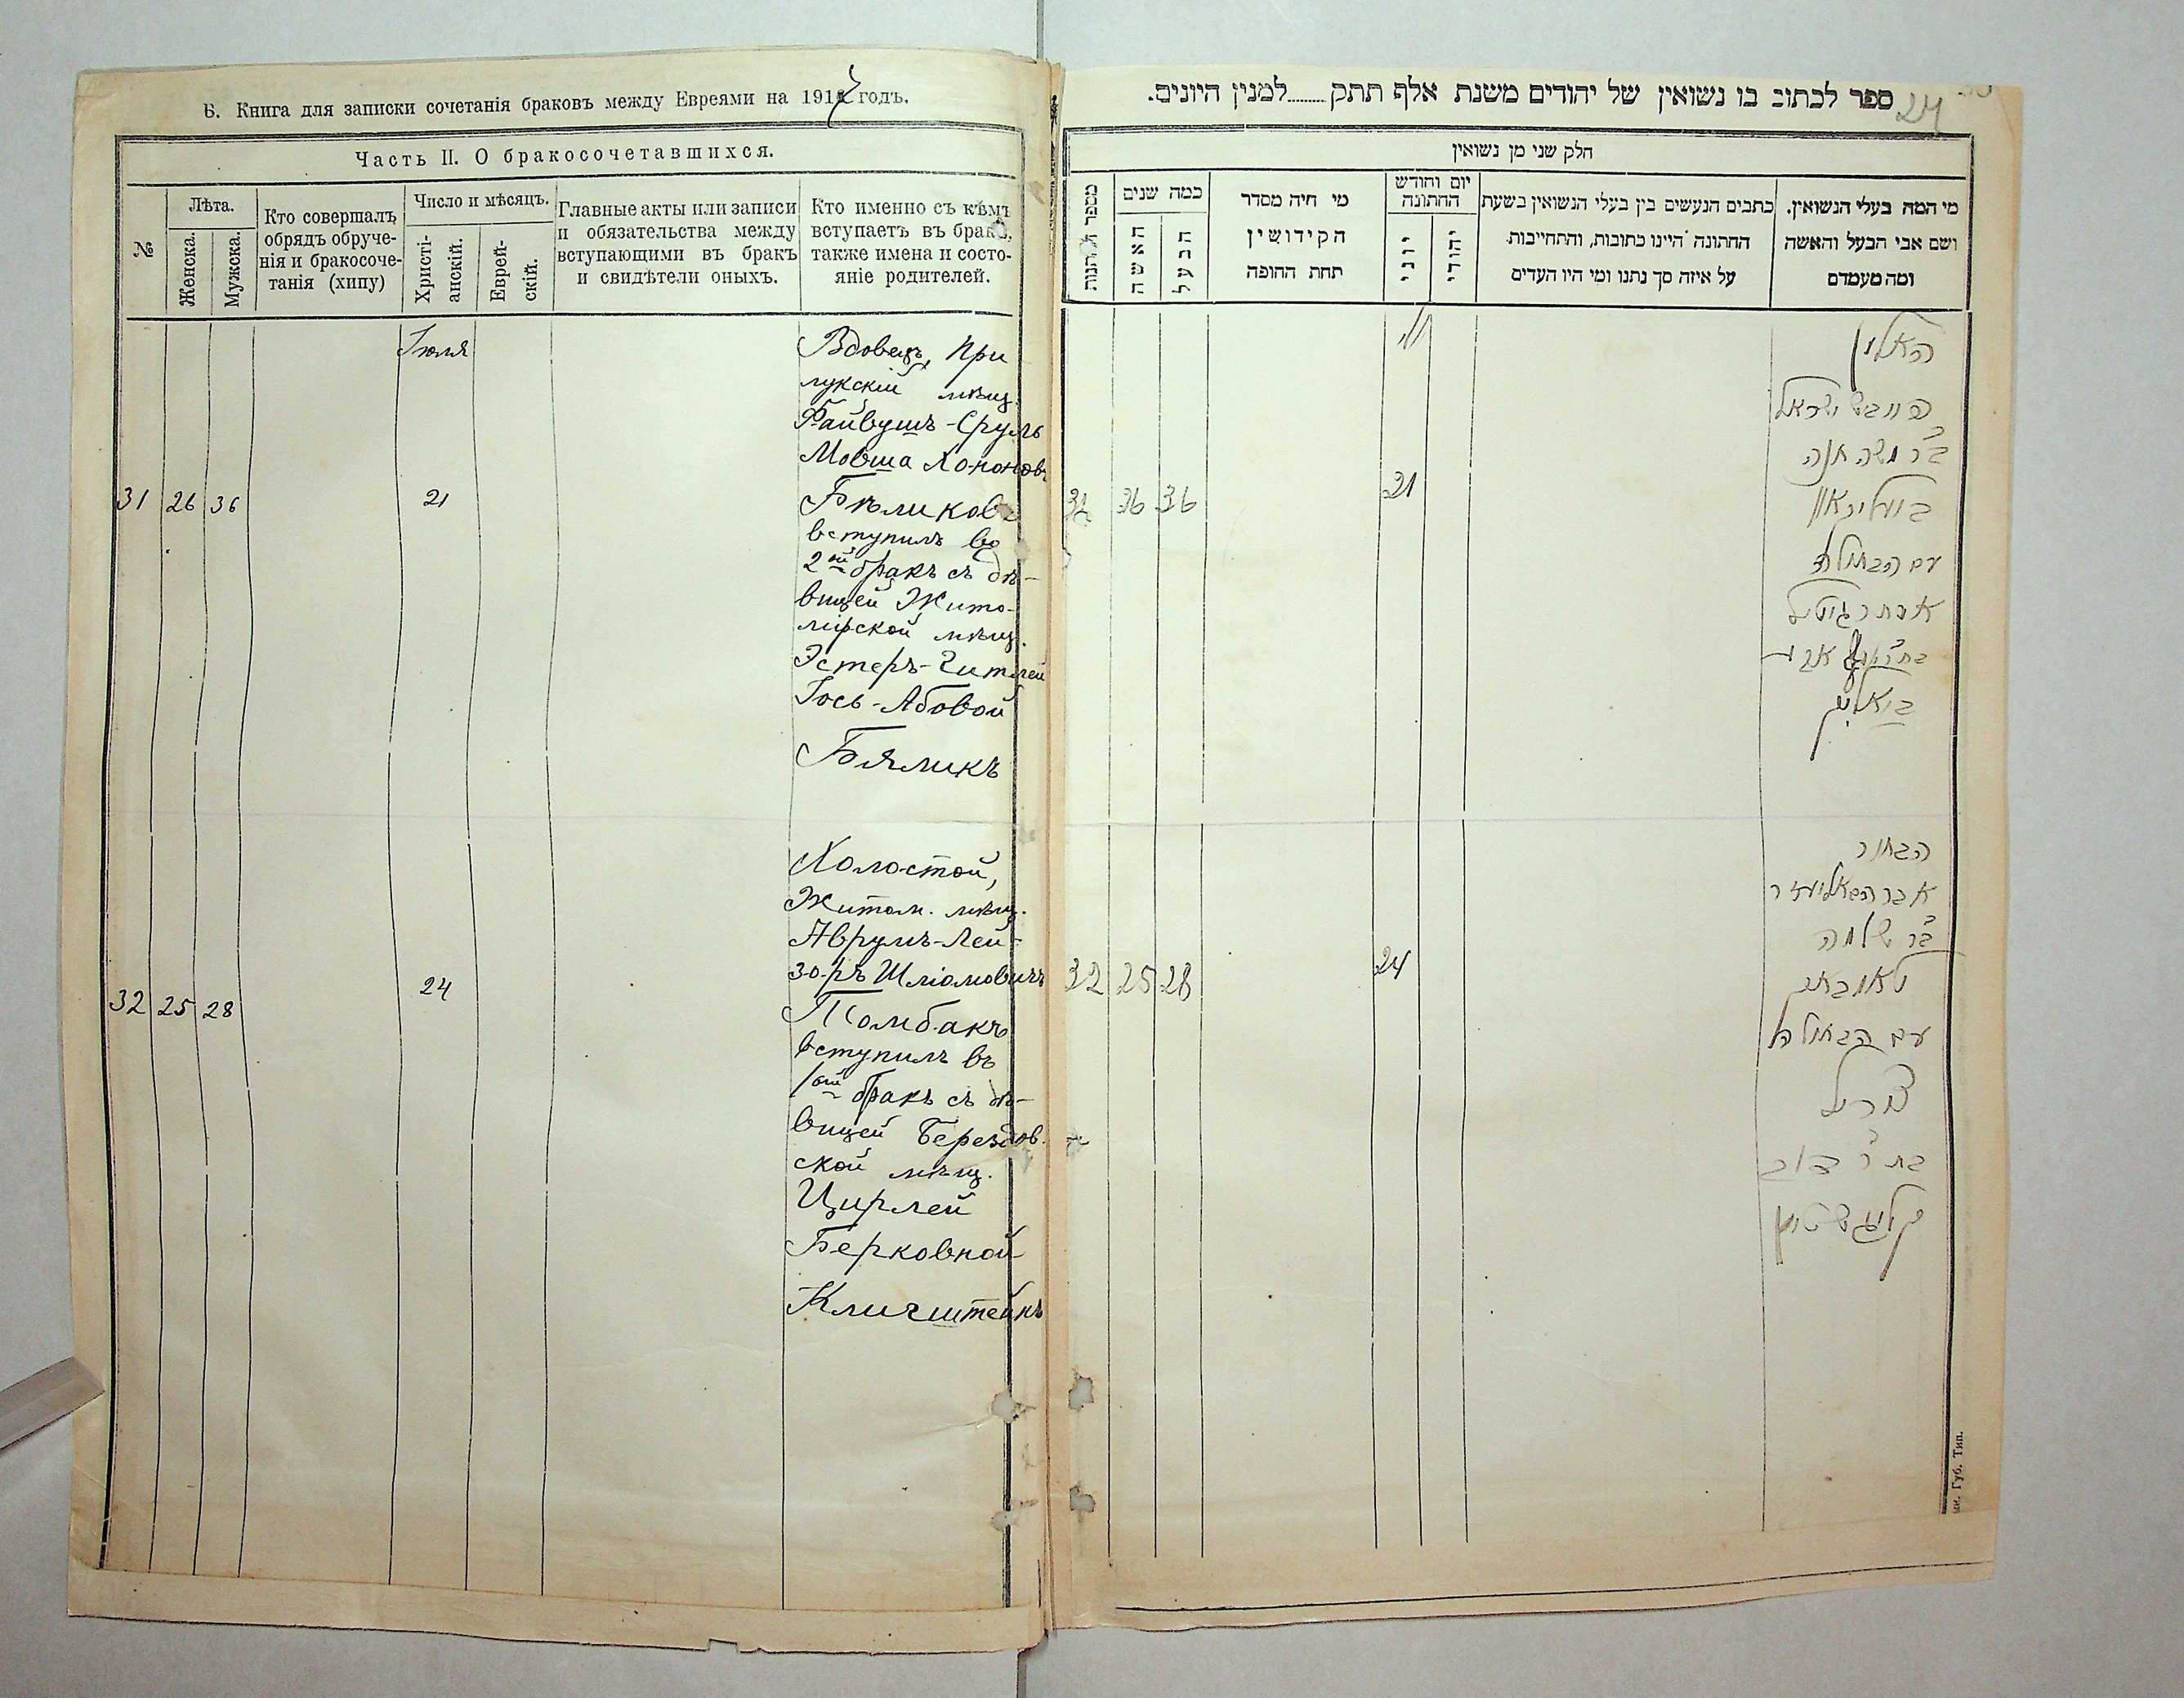 Б. Книга для записки сочетанія браковъ между Евреями на 1917 годъ.
Часть II. О бракосочетавшихся.
№
Лѣта.
Женска.
Мужска.
Кто совершалъ
обрядъ обруче-
нія и бракосоче-
танія (хипу)
Число и мѣсяцъ.
Христі-
анскій.
Еврей-
скій.
Главные акты или записи
и обязательства между
вступающими въ бракъ
и свидѣтели оныхъ.
Кто именно съ кѣмъ
вступаетъ въ бракъ,
также имена и состо-
яніе родителей.
Іюля
Вдовецъ, При
лукскій мѣщ.
Файвушъ-Сруль
Мовша Хононовъ
31 26 36 21 Бѣликовъ
вступилъ во
2ой бракъ съ дѣ-
вицей Жито-
мірской мѣщ.
Эстеръ-Гитлей
Іось-Абовой
Бяликъ
Холостой,
Житом. мѣщ.
Аврумъ-Лей-
зоръ Шліомовичъ
32 25 28 24
Томбакъ
вступилъ въ
1ой бракъ съ дѣ-
вицей Берездов.
ской мѣщ.
Цирлей
Берковной
Клигштейнъ
ספר לכתוב בו נשואין של יהודים משנת אלף תתק........למנין היונים.
24
חלק שני מן נשואין
מספר החתונות
כמה שנים
האשה
הבעל
מי חיה מסדר
הקידושין
תחת החופה
יום וחודש
החתונה
יוני
יהודי
כתבים הנעשים בין בעלי הנשואין בשעת
החתונה היינו כתובות, והתחייבות
על איזה סך נתנו ומי היו העדים
מי המה בעלי הנשואין.
ושם אבי הבעל והאשה
ומה מעמדם
האלמן
פייבש ישראל
ב״ר משה חנה
31 36 36 21
עם הבתולה
אסתר גיטיל
הבחור
אברהם אליעזר
ב״ר שלמה
32 25 28 24
טאמבאק
עם הבתולה
צירל
בת ר׳ דוב
קליגשטיין
Губ. Тип.